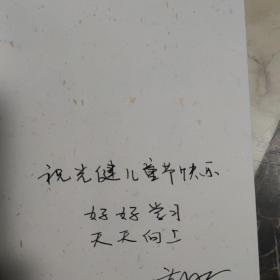 祝光健儿童节快乐
好好学习
天天向上